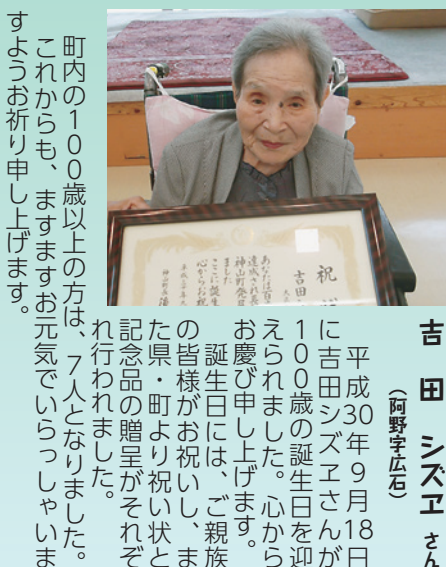 吉田 シズヱ さん
(阿野字広石)
平成30年9月18日
に吉田シズヱさんが
100歳の誕生日を迎
えられました。心から
お慶び申し上げます。
誕生日には、ご親族
の皆様がお祝いし、ま
た県・町より祝い状と
記念品の贈呈がそれぞ
れ行われました。
町内の100歳以上の方は、7人となりました。
これからも、ますますお元気でいらっしゃいま
すようお祈り申し上げます。
祝
吉田
あなたは百
達成され長
神山町発
ました
ここに誕生
心からお祝